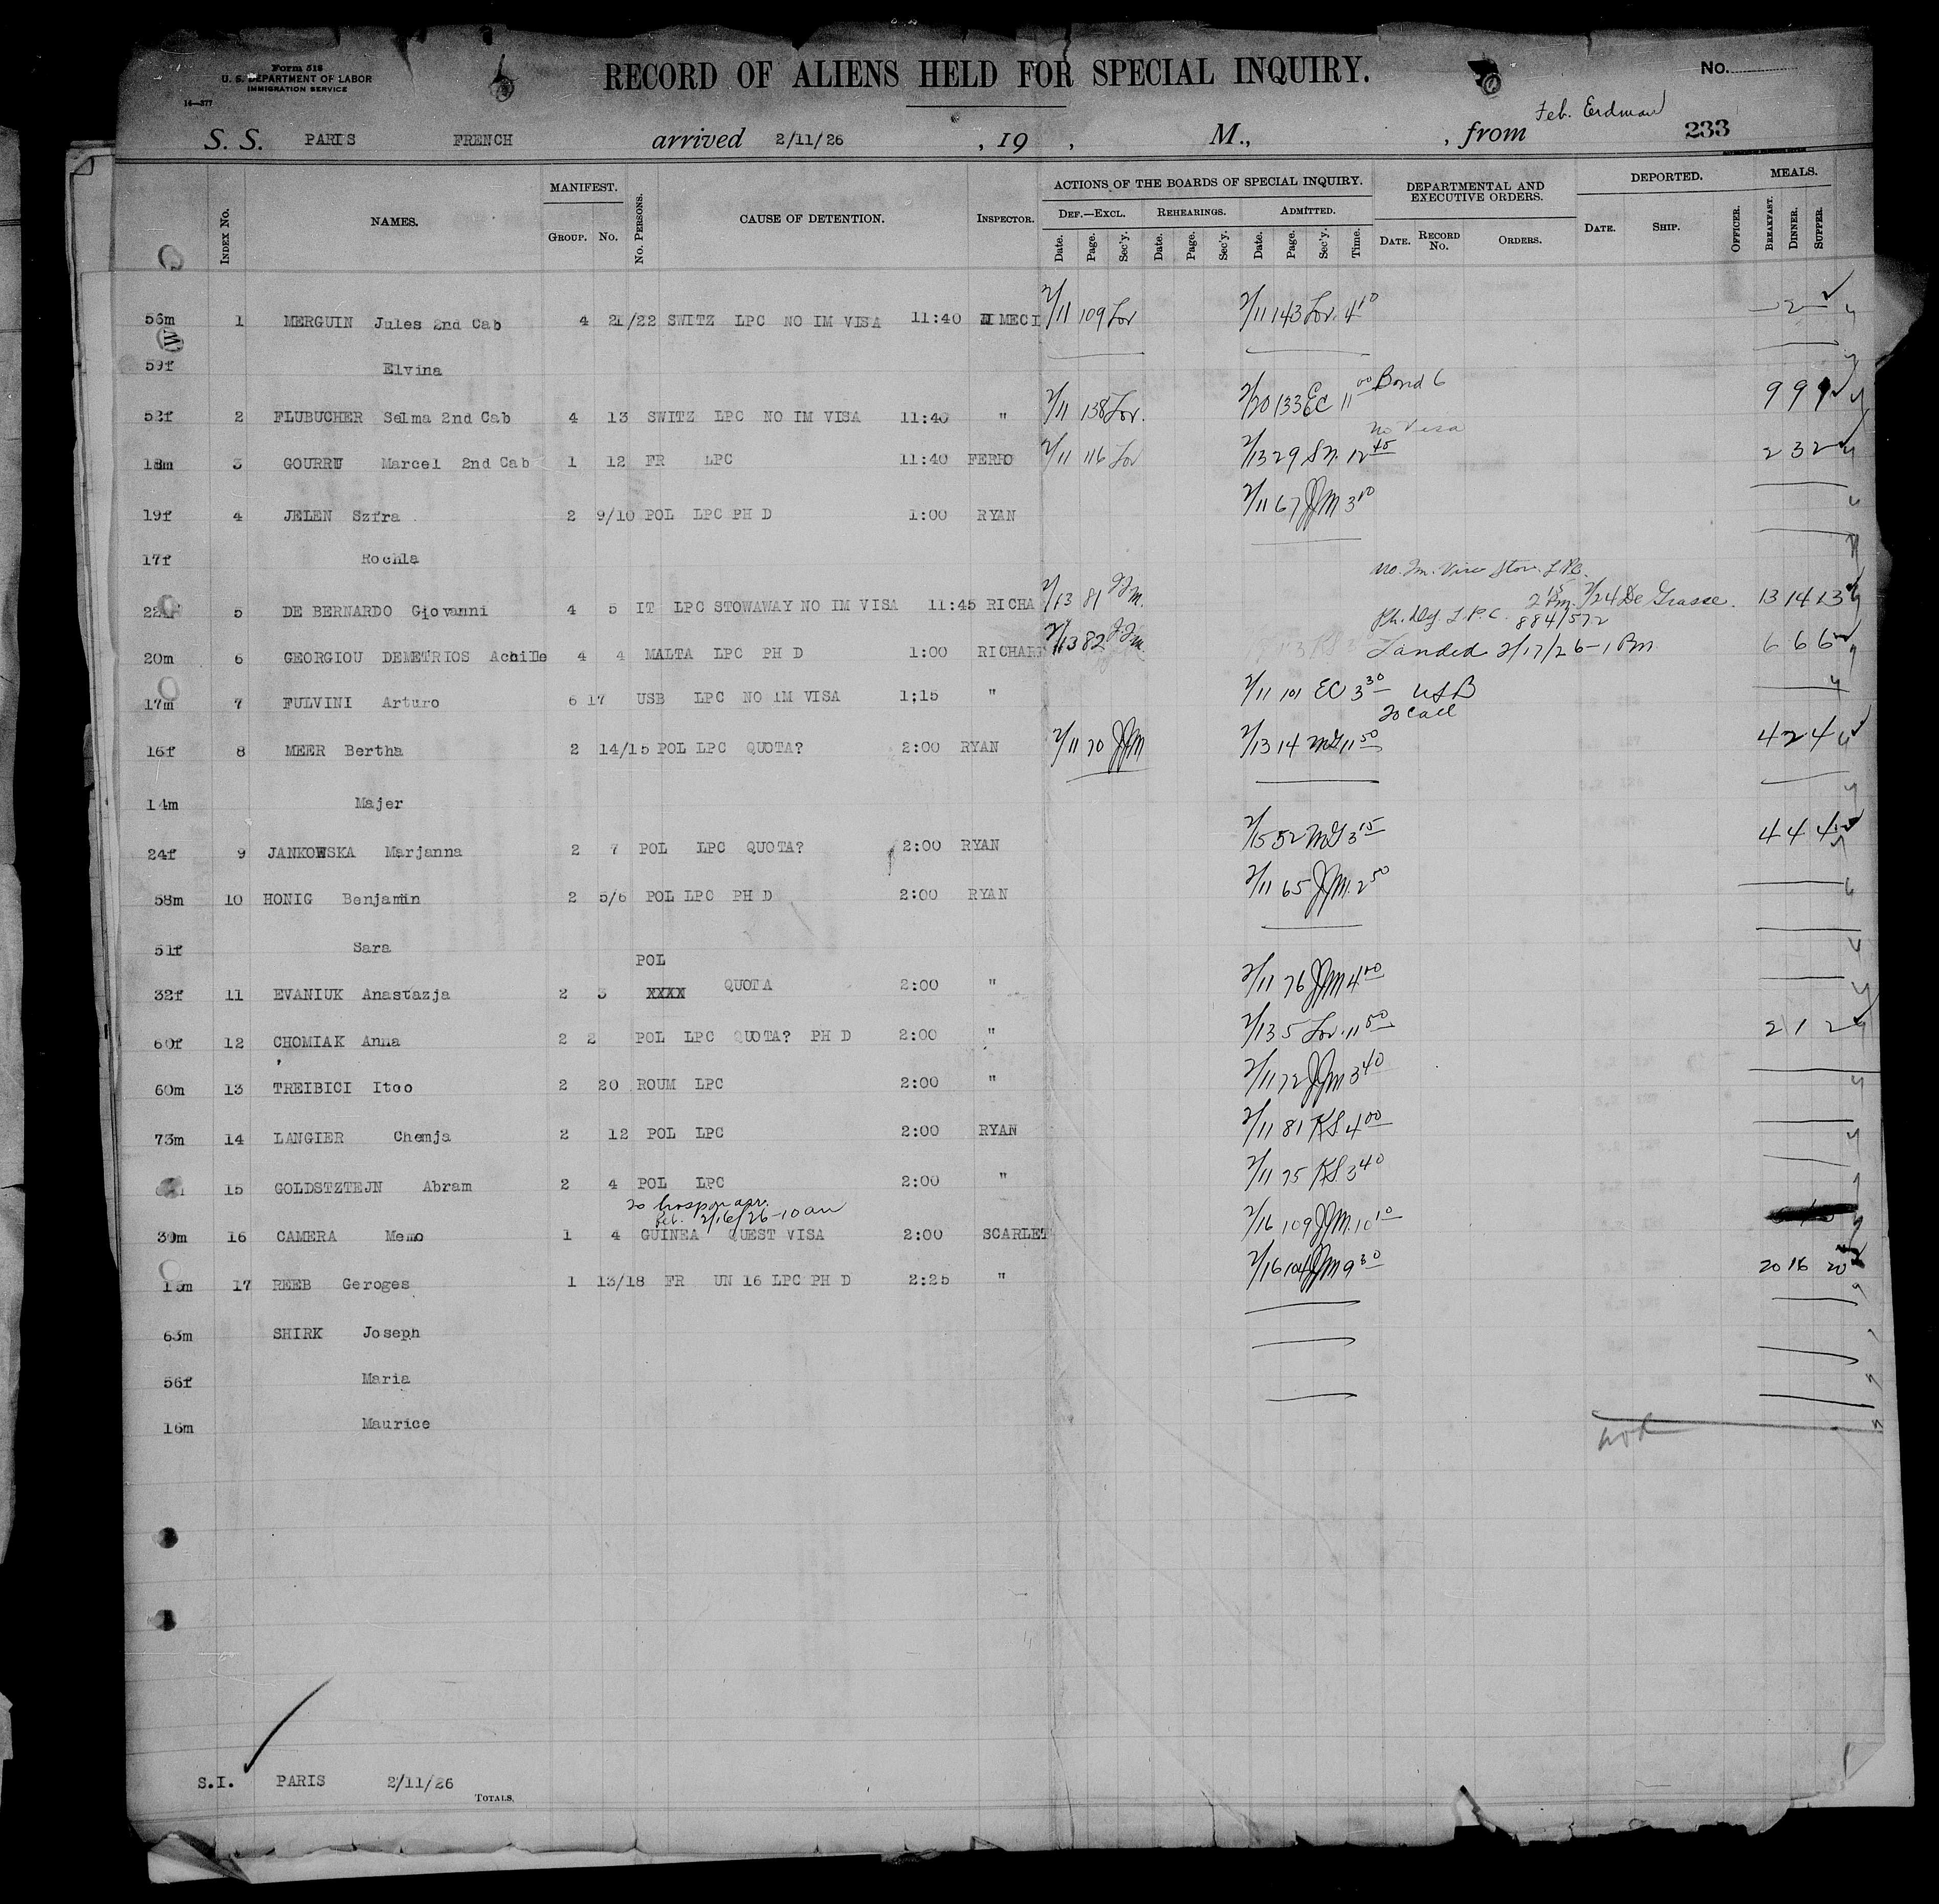 Form 518
U. S. DEPARTMENT OF LABOR
IMMIGRATION SERVICE
14—377
RECORD OF ALIENS HELD FOR SPECIAL INQUIRY.
No.
Feb. Erdman
S. S. PARIS FRENCH arrived 2/11/26 , 19 , M., , from 233
INDEX No. NAMES. MANIFEST. GROUP. No. No. PERSONS. CAUSE OF DETENTION. INSPECTOR. ACTIONS OF THE BOARDS OF SPECIAL INQUIRY. DEF.—EXCL. Date. Page. Sec'y. REHEARINGS. Date. Page. Sec'y. ADMITTED. Date. Page. Sec'y. Time. DEPARTMENTAL AND EXECUTIVE ORDERS. DATE. RECORD No. ORDERS. DEPORTED. DATE. SHIP. OFFICER. MEALS. BREAKFAST. DINNER. SUPPER.
56m 1 MERGUIN Jules 2nd Cab 4 21/22 SWITZ LPC NO IM VISA 11:40 MECI 2/11 109 Lor 2/11 143 Lor. 4 10 2
W
59f Elvina
52f 2 FLUBUCHER Selma 2nd Cab 4 13 SWITZ LPC NO IM VISA 11:40 " 2/11 138 Lor. 2/20 133 EC 11 00 Bond 6 9 9 9
No Visa
18m 3 GOURRU Marcel 2nd Cab 1 12 FR LPC 11:40 FERRO 2/11 116 Lor 2/13 29 12 45 2 3 2
19f 4 JELEN Szfra 2 9/10 POL LPC PH D 1:00 RYAN 2/11 67 JJM 3 10
17f Rochla
No. Im. Visa Stow. L.P.C.
5 DE BERNARDO Giovanni 4 5 IT LPC STOWAWAY NO IM VISA 11:45 RICHA 2/13 81 JJM. 2 15 Pm. 2/24 De Grasse. 13 14 13
Ph. Def. L.P.C. 884/572
20m 6 GEORGIOU DEMETRIOS Achille 4 4 MALTA LPC PH D 1:00 RICHARD 2/13 82 JJM Landed 2/17/26 - 1 Pm 6 6 6
17m 7 FULVINI Arturo 6 17 USB LPC NO IM VISA 1:15 " 2/11 101 EC 3 30 USB
To Call
16f 8 MEER Bertha 2 14/15 POL LPC QUOTA? 2:00 RYAN 2/11 70 JJM 2/13 14 McG 11 50 4 2 4
14m Majer
24f 9 JANKOWSKA Marjanna 2 7 POL LPC QUOTA? 2:00 RYAN 2/15 52 McG 3 15 4 4 4
58m 10 HONIG Benjamin 2 5/6 POL LPC PH D 2:00 RYAN 2/11 65 JJM. 2 50
51f Sara
POL
32f 11 EVANIUK Anastazja 2 3 XXXX QUOTA 2:00 " 2/11 76 JJM 4 00
60f 12 CHOMIAK Anna 2 2 POL LPC QUOTA? PH D 2:00 " 2/13 5 Lor. 11 50 2 1 2
60m 13 TREIBICI Itco 2 20 ROUM LPC 2:00 " 2/11 72 JJM 3 40
73m 14 LANGIER Chemja 2 12 POL LPC 2:00 RYAN 2/11 81 KS 4 00
15 GOLDSZTEJN Abram 2 4 POL LPC 2:00 " 2/11 75 KS 3 40
To hosp on arr.
Ret. 2/16/26 - 10 am
30m 16 CAMERA Memo 1 4 GUINEA QUEST VISA 2:00 SCARLET 2/16 109 JJM. 10 10
17 REEB Geroges 1 13/18 FR UN 16 LPC PH D 2:25 " 2/16 104 JJM 9 30 20 16 20
63m SHIRK Joseph
56f Maria
16m Maurice
S.I. PARIS 2/11/26
TOTALS.